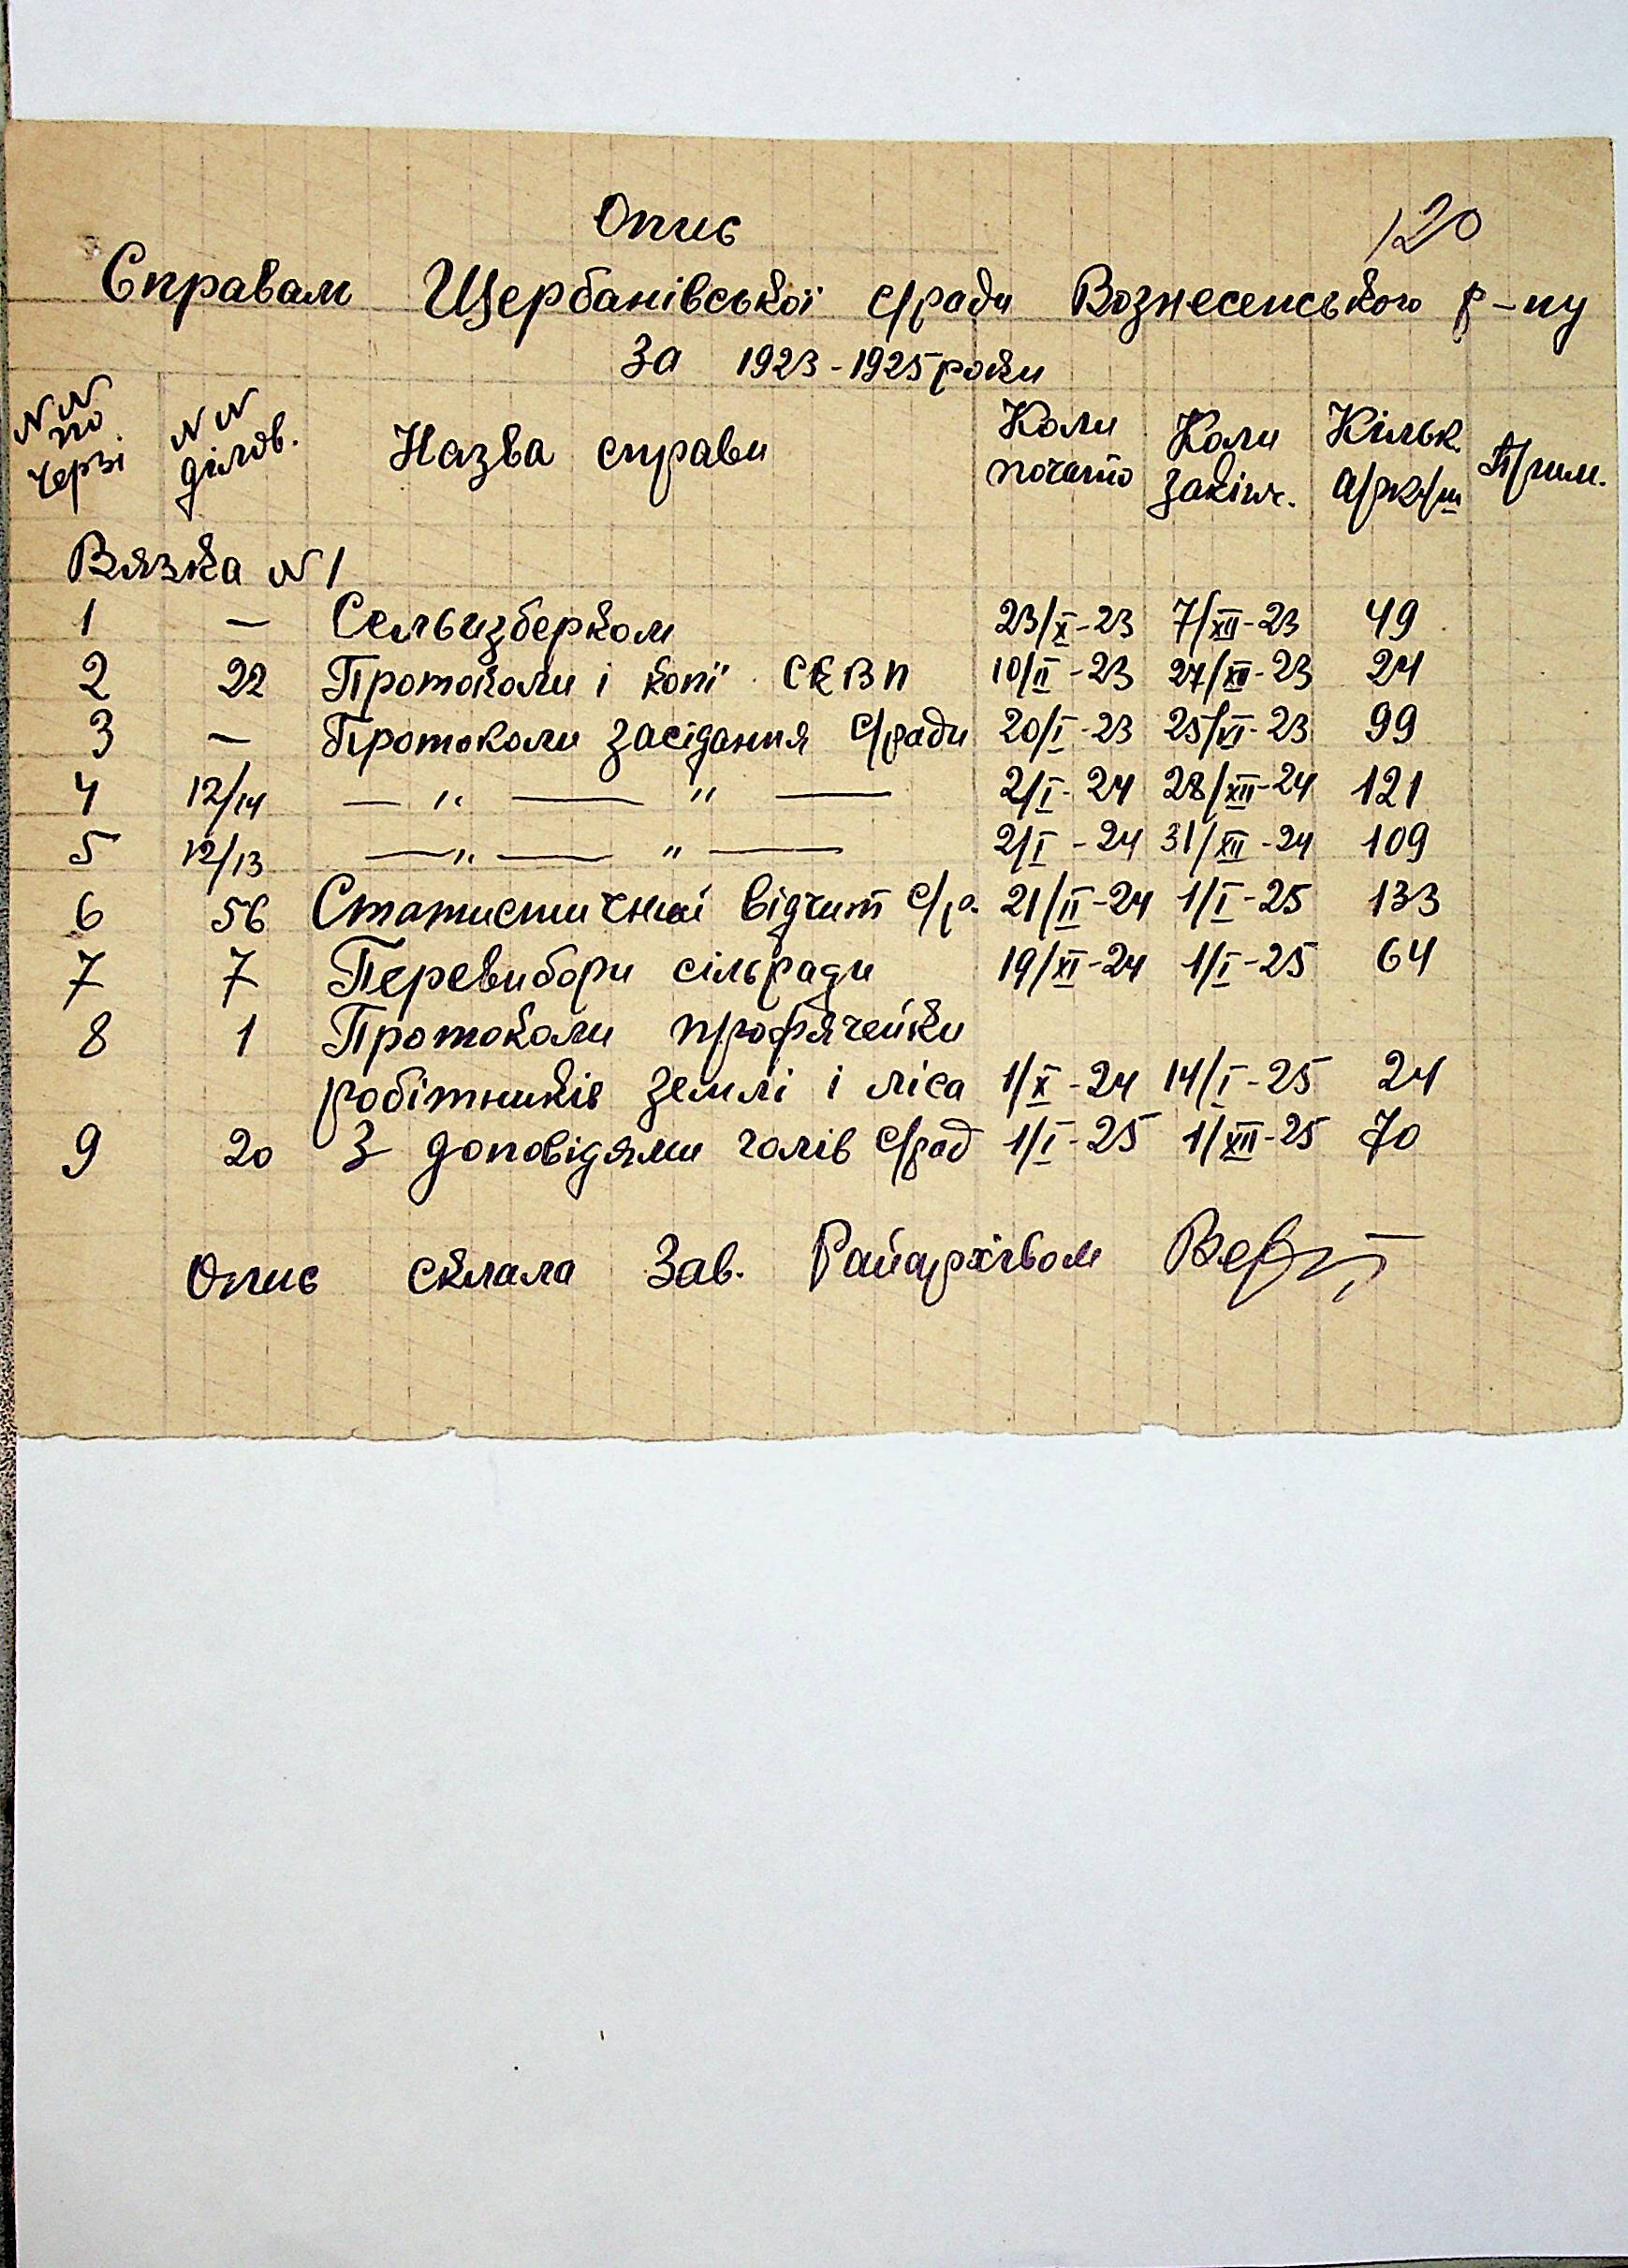 120
Опис
Справам Щербанівської с/ради Вознесенського р-ну
за 1923-1925 роки
NN по черзі NN ділов. Назва справи Коли почато Коли закінч. Кільк. арк/ш Прим.
Вязка N 1
1 — Сельизберком 23/X-23 7/XII-23 49
2 22 Протоколи і копії СКВП 10/II-23 27/XII-23 24
3 — Протоколи засідання с/ради 20/I-23 25/VI-23 99
4 12/14 — " — " — 2/I-24 28/XII-24 121
5 12/13 — " — " — 2/I-24 31/XII-24 109
6 56 Статистичний відчит с/р. 21/II-24 1/I-25 133
7 7 Перевибори сільради 19/XI-24 1/I-25 64
8 1 Протоколи профячейки
робітників землі і ліса 1/X-24 14/I-25 24
9 20 З доповідями голів с/рад 1/I-25 1/XII-25 70
Опис склала Зав. Райархівом